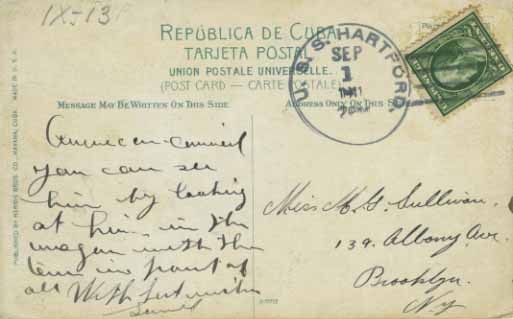 IX-13
REPÚBLICA DE CUBA
TARJETA POSTAL
UNION POSTALE UNIVERSELLE.
(POST CARD — CARTE POSTALE)
MESSAGE MAY BE WRITTEN ON THIS SIDE
ADDRESS ONLY ON THIS SIDE
U.S.S. HARTFORD.
SEP
1
MADE IN U.S.A.
PUBLISHED BY HARRIS BROS. CO., HAVANA, CUBA.
American
you can see
him by looking
at him, in the
wagon with the
in front of
all With best wishes
Miss M. G. Sullivan.
139. Albany Ave.
Brooklyn.
NY